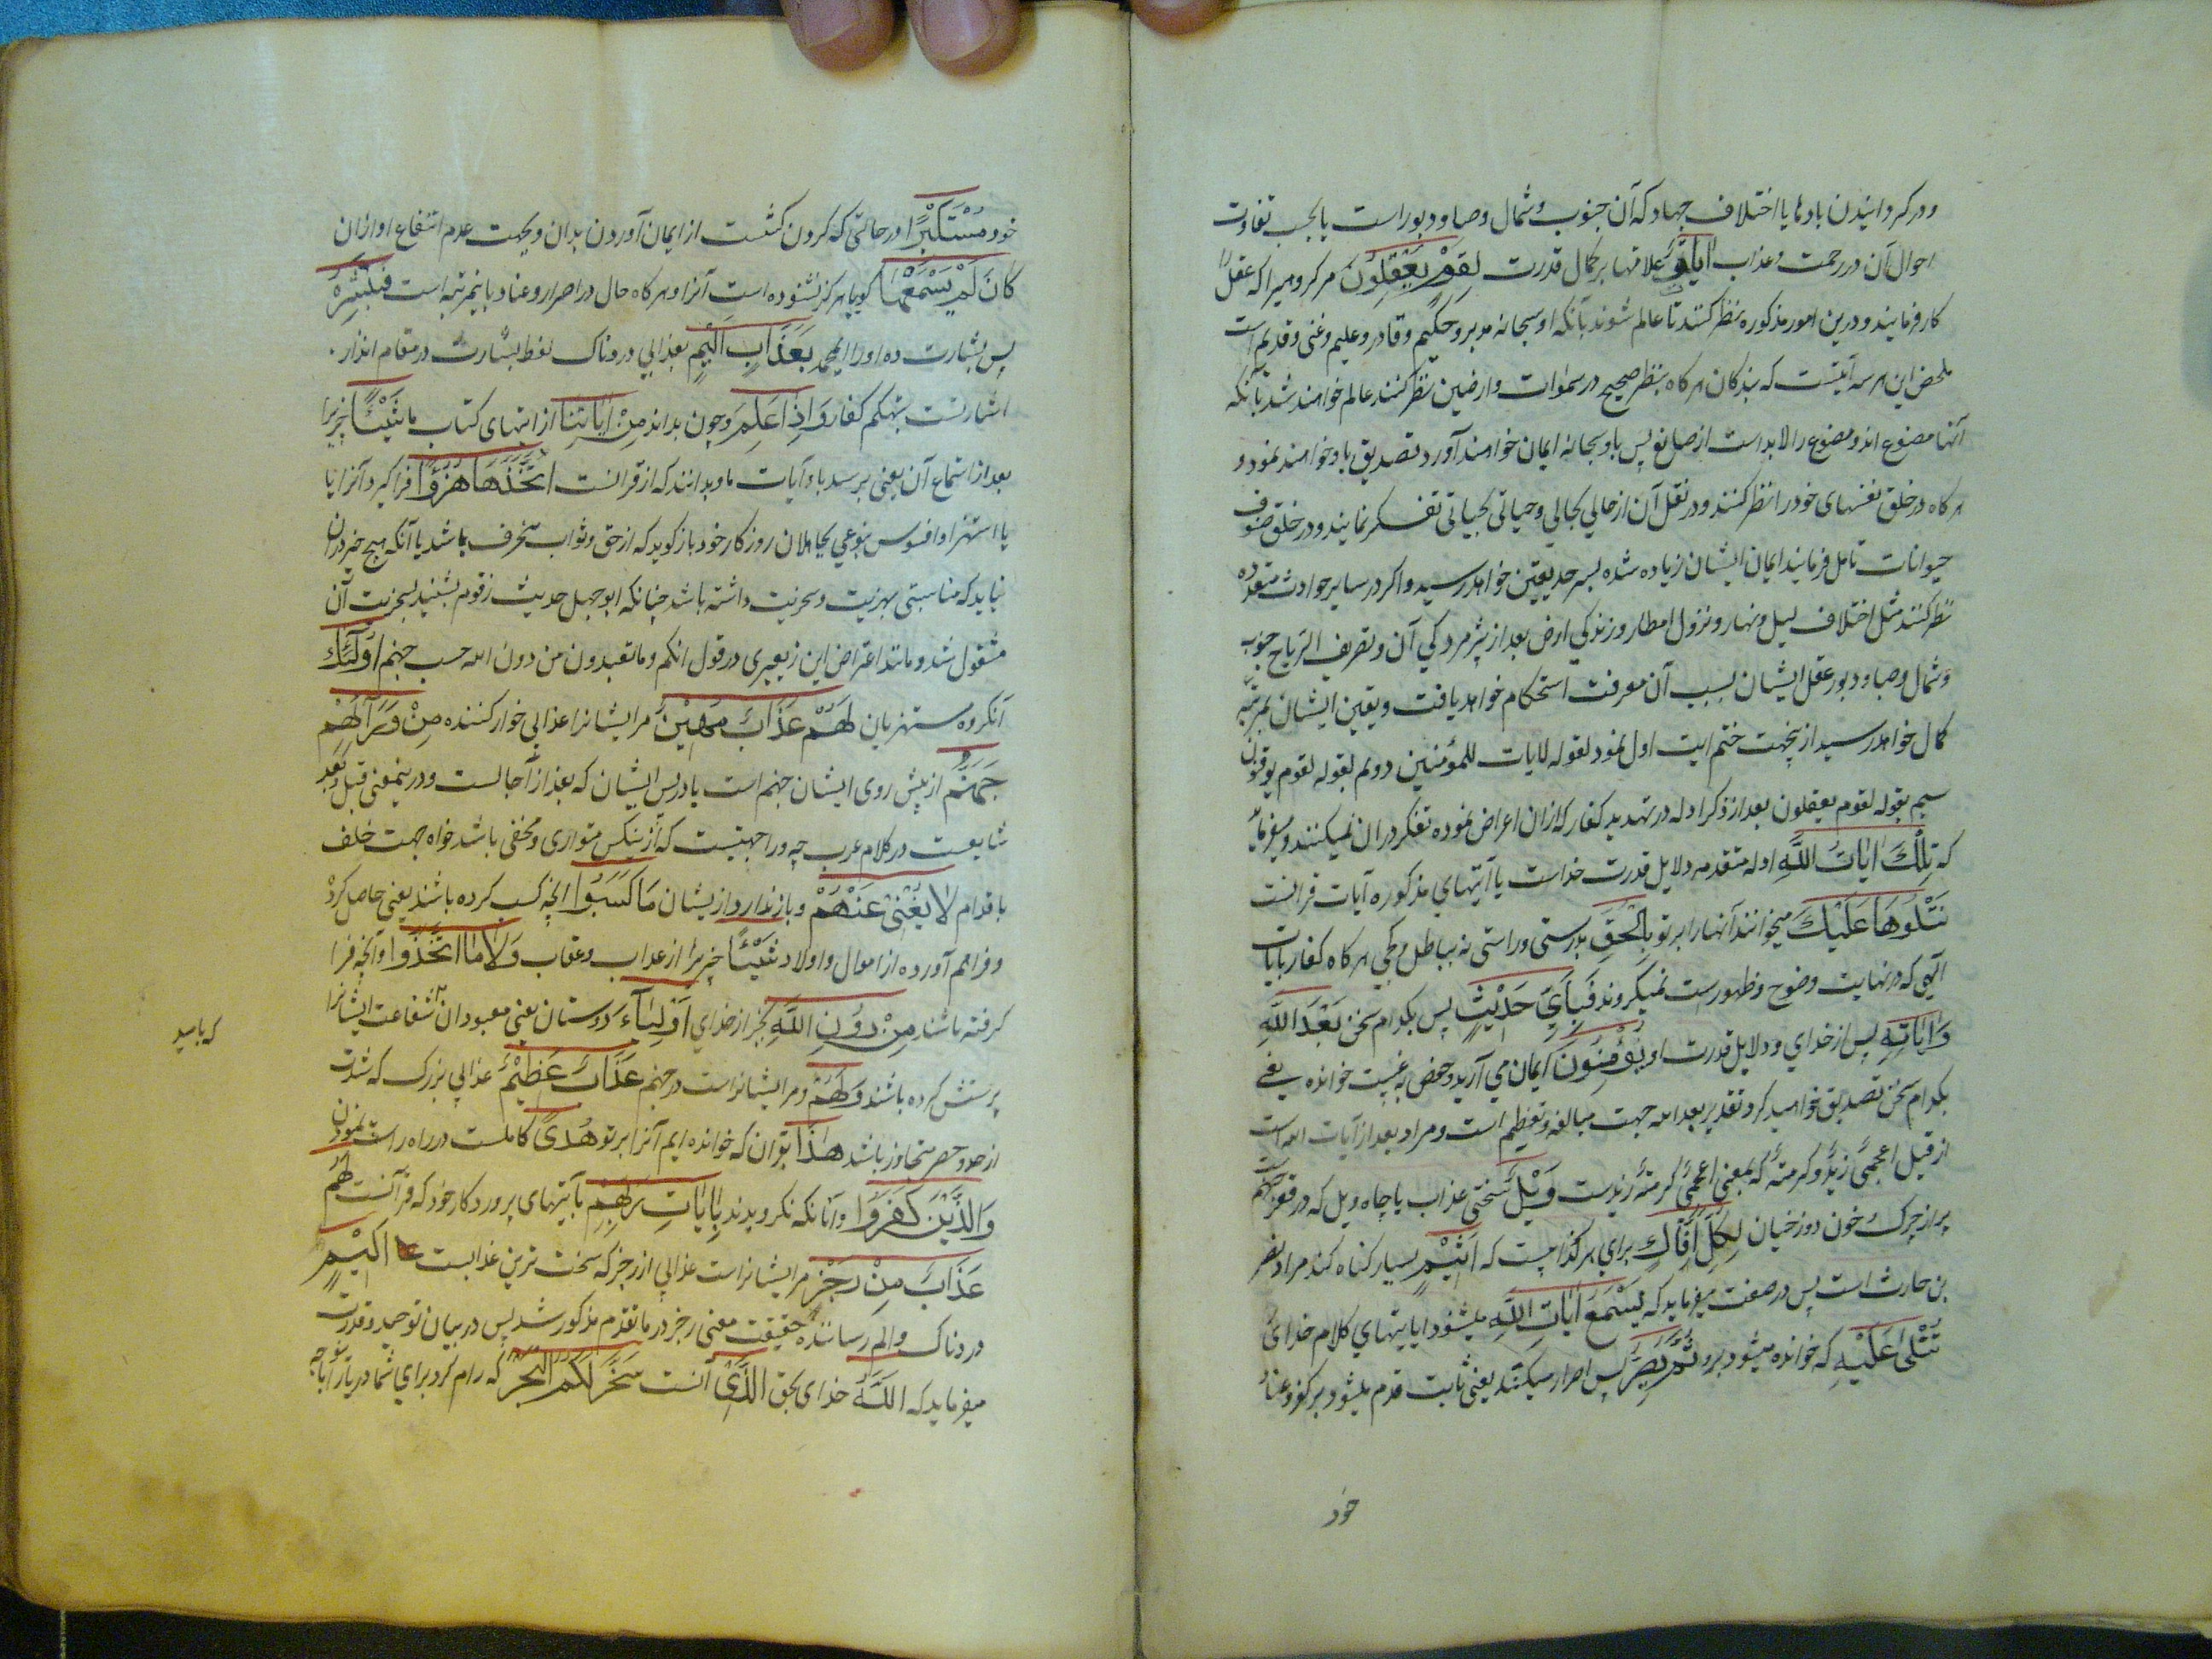 و در گردانیدن بادها یا اختلاف جهاد که آن جنوب و شمال و صبا و دبور است یا بحسب تفاوت
احوال آن در رحمت و عذاب اٰیَاتٌ علامتها بر کمال قدرت لِقَوْمٍ يَعْقِلُونَ مر گروهیرا که عقل را
کار فرمایند و درین امور مذکوره نظر کنند تا عالم شوند بآنکه او سبحانه مدبر و حکیم و قادر و علیم و غنی و قدیم است
ملخص این هر سه آیتست که بندکان هرکاه بنظر صحیح در سموات و ارضین نظر کنند عالم خواهند شد بآنکه
آنها مصنوع اند و مصنوع را لابد است از صانع پس باو سبحانه ایمان خواهند آورد و تصدیق باو خواهند نمود و
هرکاه در خلق نفسهای خود را نظر کنند و در نقل آن از حالی بحالی و حیاتی بحیاتی تفکر نمایند و در خلق صنوف
حیوانات تامل فرمایند ایمان ایشان زیاده شده بسر حد یقین خواهد رسید و اکر در سایر حوادث متعدده
نظر کنند مثل اختلاف لیل و نهار و نزول امطار و زندکی ارض بعد از پژمردکی آن و تصریف الریاح جنوب
و شمال و صبا و دبور عقل ایشان بسبب آن معرفت استحکام خواهد یافت و یقین ایشان بمرتبه
کمال خواهد رسید ازینجهت ختم ایت اول نمود لقوله لایات للمؤمنین دویم بقوله لقوم یوقنون
سیم بقوله لقوم یعقلون بعد از ذکر ادله در تهدید کفار که ازان اعراض نموده تفکر در ان نمیکنند و میفرماید
که تِلْكَ اٰيَاتُ اللّٰهِ ادله متقدمه دلایل قدرت خداست یا آیتهای مذکوره آیات قرانست
نَتْلُوهَا عَلَيْكَ میخوانند آنها را بر تو بِالْحَقِّ بدرستی و راستی نه بباطل و کجی هرکاه کفار بایات
الهی که در نهایت وضوح و ظهور است نمیکروند فَبِاَيِّ حَدِيْثٍ پس بکدام سخن بَعْدَ اللّٰهِ
وَاٰيَاتِهِ پس از خدای و دلایل قدرت او يُؤْمِنُونَ ایمان می آرید و حفص به غیبت خوانده یعنی
بکدام سخن تصدیق خواهند کرد و تقدیر بعد الله جهت مبالغه و تعظیم است و مراد بعد از آیات الله است
از قبیل اعجبنی زید و کرمه که بمعنی اعجبنی کرم زید است وَيْلٌ سختی عذاب یا چاه ویل که در قعر جهنم است
پر از چرک و خون دوزخیان لِكُلِّ اَفَّاكٍ برای هر کذابیست که اَثِيْمٍ بسیار کناه کند مراد نضر
بن حارث است پس در صفت میفرماید که يَسْمَعُ اٰيَاتِ اللّٰهِ میشنود ایاتیهای کلام خدای
تُتْلٰى عَلَيْهِ که خوانده میشود برو ثُمَّ يُصِرُّ پس اصرار میکند یعنی ثابت قدم میشود بر کفر و عناد
خود
خود مُسْتَكْبِرًا در حالتی که کردن کشست از ایمان آوردن بدان و بجهت عدم انتفاع او ازان
كَاَنْ لَمْ يَسْمَعْهَا کویا هرکز نشنوده است آنرا و هرکاه حال در اصرار و عناد باینمرتبه است فَبَشِّرْهُ
پس بشارت ده او را ای محمد بِعَذَابٍ اَلِيْمٍ بعذابی دردناک لفظ بشارت در مقام انذار
اشارتست بتهکم کفار وَاِذَا عَلِمَ و چون بداند مِنْ اٰيَاتِنَا از ایتهای کتاب ما شَيْئًا چیزیرا
بعد از استماع آن یعنی برسد باو آیات ما و بدانند که از قرانست اتَّخَذَهَا هُزُوًا فرا کیرد آنرا یا
یا استهزا و افسوس بنوعی بجاهلان روزکار خود باز کوید که از حق و ثواب منحرف باشد یا آنکه هیچ خبر دران
نیاید که مناسبتی بهزیت و سخریت داشته باشد چنانکه ابو جهل حدیث زقوم بشنید بسخریت آن
مشغول شد و مانند اعتراض ابن زبعیری در قول انکم و ما تعبدون من دون الله حسب جهنم اُولٰئِكَ
آنکروه مستهزیان لَهُمْ عَذَابٌ مُهِيْنٌ مر ایشانرا عذابی خوار کننده مِنْ وَرَآئِهِمْ
جَهَنَّمُ از پیش روی ایشان جهنم است یا در پس ایشان که بعد از آجالست و در ینمعنی قبل و بعد
شایعست در کلام عرب چه ورا جهتیست که ازینکس متواری و مخفی باشد خواه جهت خلف
یا قدام لَا يُغْنِيْ عَنْهُمْ و باز ندارد از یشان مَا كَسَبُوا انچه کسب کرده باشند یعنی حاصل کرد
و فراهم آورده از اموال و اولاد شَيْئًا چیزیرا از عذاب و عقاب وَلَا مَا اتَّخَذُوا و آنچه فرا
کرفته باشند مِنْ دُونِ اللّٰهِ بجز از خدای اَوْلِيَآءَ دوستان یعنی معبودان شفاعت ایشانرا
پرستش کرده باشند وَلَهُمْ و مر ایشانراست در جهنم عَذَابٌ عَظِيْمٌ عذابی بزرک که شدت
از حد و حصر متجاوز باشد هٰذَا قران که خوانده ایم آنرا بر تو هُدًى کاملست در راه راست نمودن
وَالَّذِيْنَ كَفَرُوا و آنانکه نکرویدند بِاٰيَاتِ رَبِّهِمْ بآیتهای پروردکار خود که قرآنست لَهُمْ
عَذَابٌ مِنْ رِجْزٍ مر ایشانراست عذابی از رجز که سخت ترین عذابست اَلِيْمٍ
دردناک و الم رساننده حقیقت معنی رجز در ما تقدم مذکور شد پس در بیان توحید و قدرت
میفرماید که اللّٰهُ خدای بحق الَّذِي آنست سَخَّرَ لَكُمُ الْبَحْرَ که رام کرد برای شما دریا را